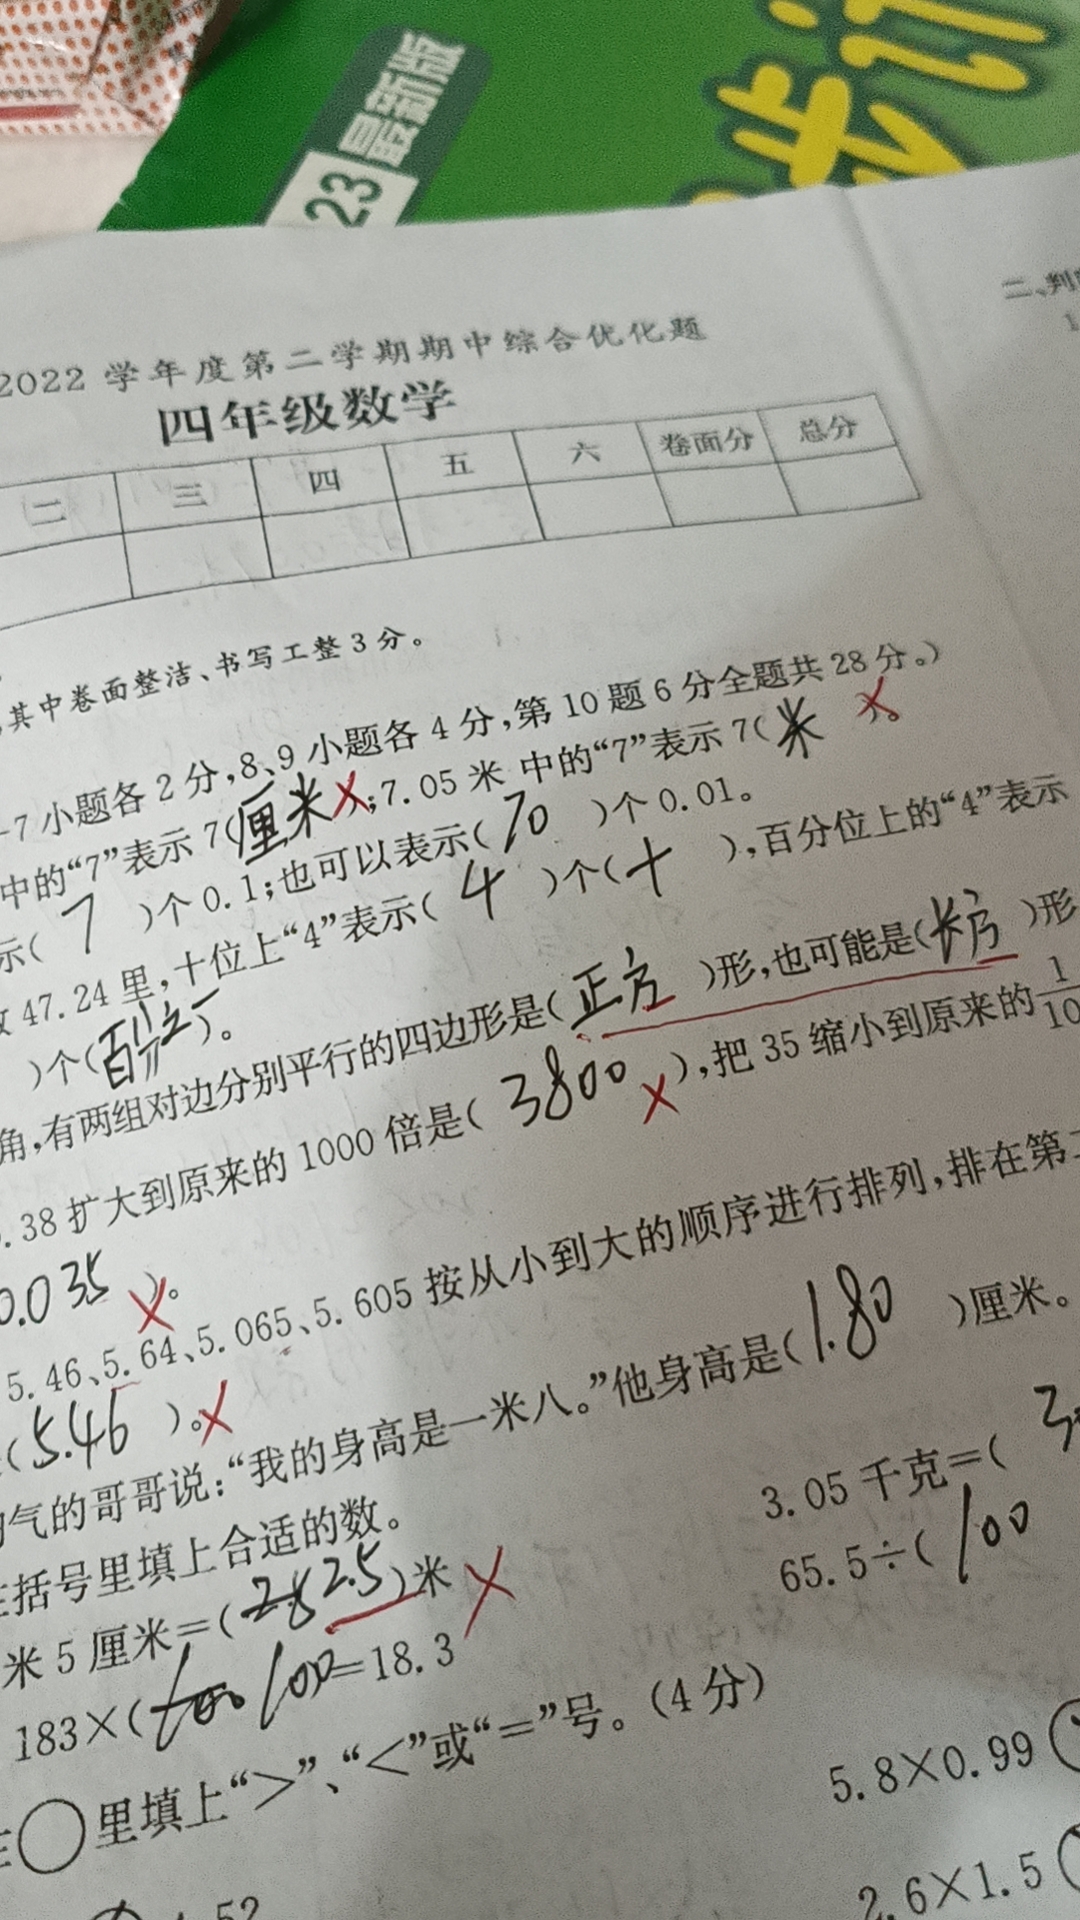 最新版
23
2022 学年度第二学期期中综合优化题
四年级数学
二 三 四 五 六 卷面分 总分
二、判
其中卷面整洁、书写工整 3 分。
7 小题各 2 分,8、9 小题各 4 分,第 10 题 6 分全题共 28 分。)
中的“7”表示 7(厘米);7.05 米 中的“7”表示 7(米)。
示( 7 )个 0.1;也可以表示( 70 )个 0.01。
47.24 里,十位上“4”表示( 4 )个(十 ),百分位上的“4”表示
)个(百分之一)。
角,有两组对边分别平行的四边形是(正方 )形,也可能是(长方 )形
.38 扩大到原来的 1000 倍是( 3800 ),把 35 缩小到原来的 1/10
0.035 )。
5.46、5.64、5.065、5.605 按从小到大的顺序进行排列,排在第
(5.46 )。
气的哥哥说:“我的身高是一米八。”他身高是(1.80 )厘米。
括号里填上合适的数。
米 5 厘米=( 2.5)米 3.05 千克=( 3
183×( 100)=18.3 65.5÷( 100
○里填上“>”、“<”或“=”号。(4 分)
5.8×0.99
52 2.6×1.5